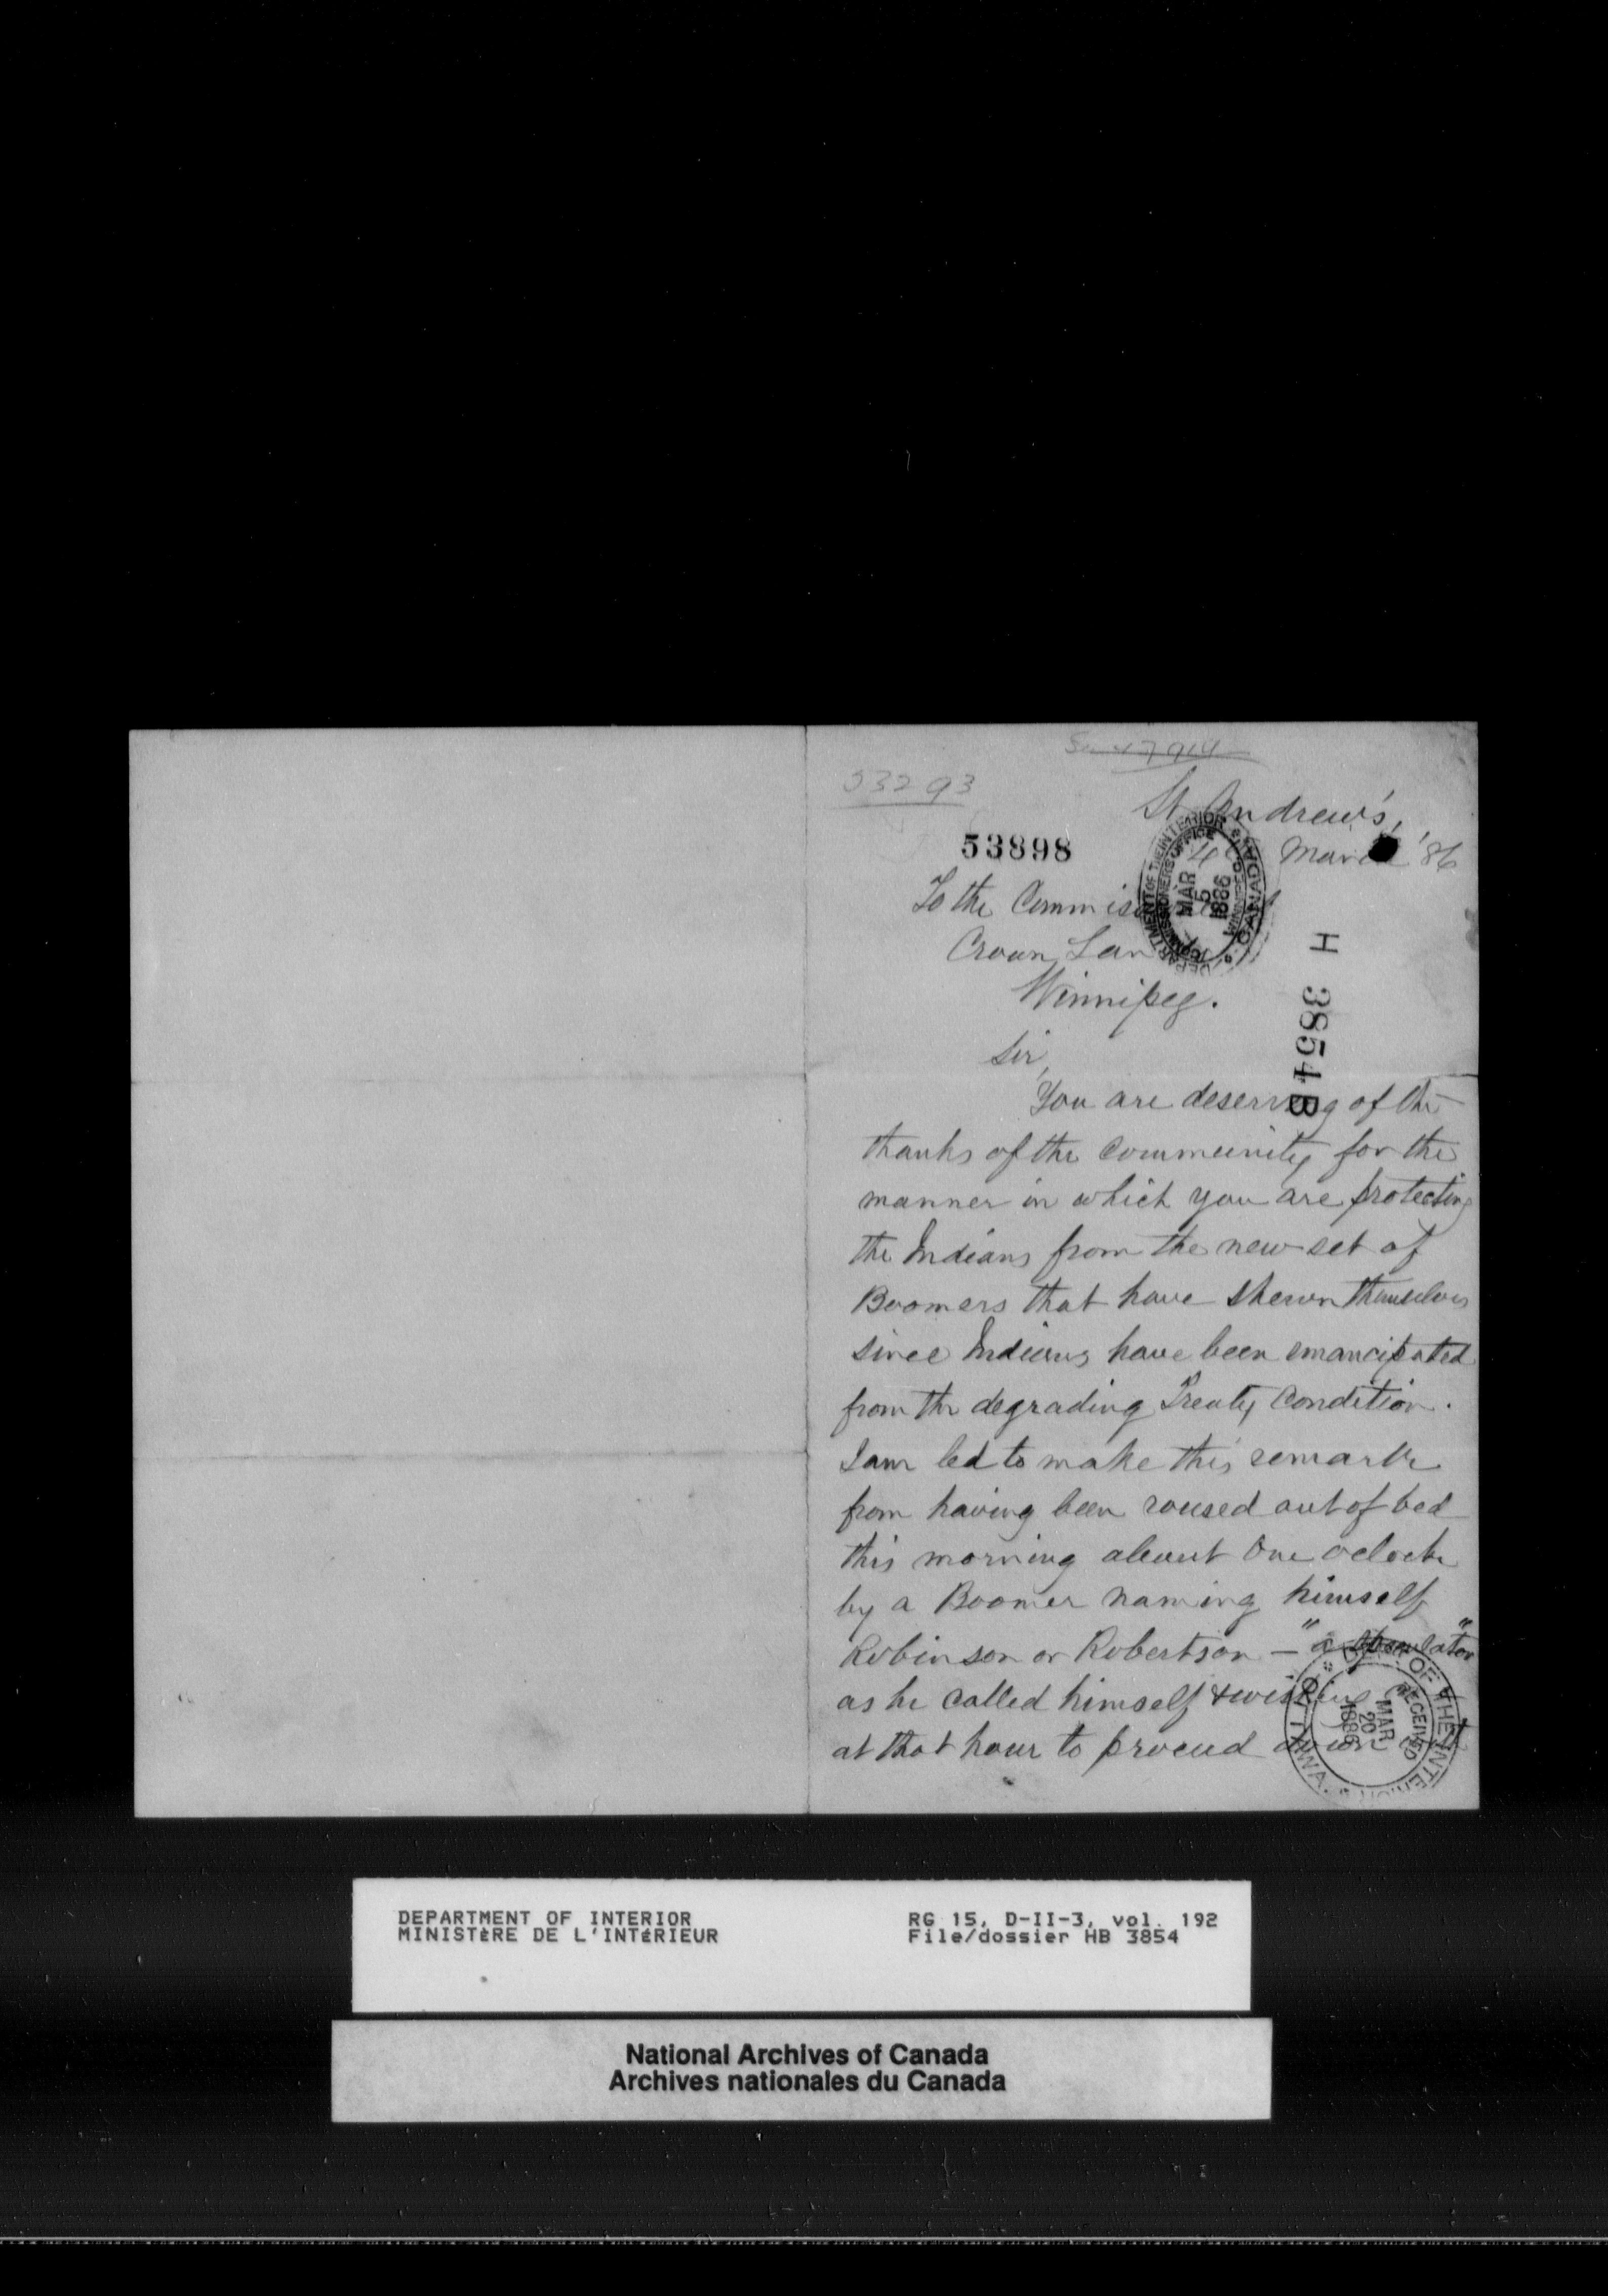 53293
St Andrew's,
53898
4th March '86
To the Commissioner of
Crown Lands
Winnipeg.
Sir,
You are deserving of the
thanks of the community for the
manner in which you are protecting
the Indians from the new set of
Boomers that have shewn themselves
since Indians have been emancipated
from the degrading Treaty condition.
I am led to make this remark
from having been roused out of bed
this morning about One oclock
by a Boomer naming himself
Robinson or Robertson — "a speculator"
as he called himself & wishing
at that hour to proceed down
DEPARTMENT OF THE INTERIOR
COMMISSIONERS OFFICE
MAR
5
1886
WINNIPEG
CANADA
H 3854 B
DEPT. OF THE INTERIOR
RECEIVED
MAR
20
1886
OTTAWA.
DEPARTMENT OF INTERIOR
MINISTÈRE DE L'INTÉRIEUR
RG 15, D-II-3, vol. 192
File/dossier HB 3854
National Archives of Canada
Archives nationales du Canada